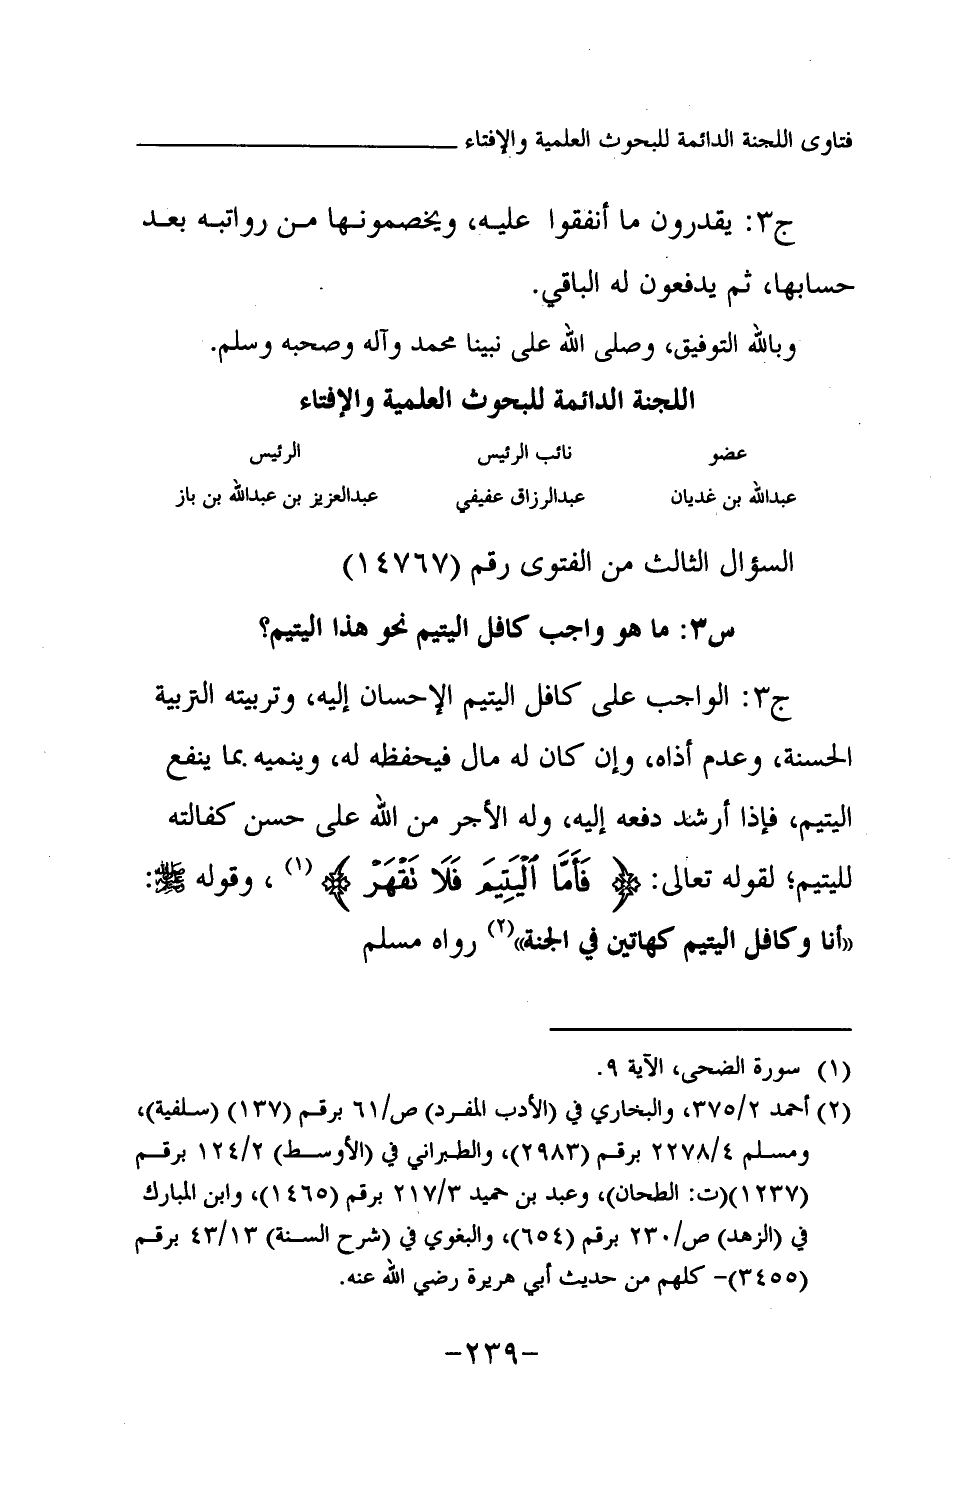 فتاوى اللجنة الدائمة للبحوث العلمية والإفتاء
ج٣: يقدرون ما أنفقوا عليه، ويخصمونها من رواتبه بعد
حسابها، ثم يدفعون له الباقي.
وبالله التوفيق، وصلى الله على نبينا محمد وآله وصحبه وسلم.
اللجنة الدائمة للبحوث العلمية والإفتاء
عضو نائب الرئيس الرئيس
عبدالله بن غديان عبدالرزاق عفيفي عبدالعزيز بن عبدالله بن باز
السؤال الثالث من الفتوى رقم (١٤٧٦٧)
س٣: ما هو واجب كافل اليتيم نحو هذا اليتيم؟
ج٣: الواجب على كافل اليتيم الإحسان إليه، وتربيته التربية
الحسنة، وعدم أذاه، وإن كان له مال فيحفظه له، وينميه بما ينفع
اليتيم، فإذا أرشد دفعه إليه، وله الأجر من الله على حسن كفالته
لليتيم؛ لقوله تعالى: ﴿ فَأَمَّا ٱلْيَتِيمَ فَلَا تَقْهَرْ ﴾ (١)، وقوله ﷺ:
«أنا وكافل اليتيم كهاتين في الجنة»(٢) رواه مسلم
(١) سورة الضحى، الآية ٩.
(٢) أحمد ٣٧٥/٢، والبخاري في (الأدب المفرد) ص/٦١ برقم (١٣٧) (سلفية)،
ومسلم ٢٢٧٨/٤ برقم (٢٩٨٣)، والطبراني في (الأوسط) ١٢٤/٢ برقم
(١٢٣٧)(ت: الطحان)، وعبد بن حميد ٢١٧/٣ برقم (١٤٦٥)، وابن المبارك
في (الزهد) ص/٢٣٠ برقم (٦٥٤)، والبغوي في (شرح السنة) ٤٣/١٣ برقم
(٣٤٥٥)- كلهم من حديث أبي هريرة رضي الله عنه.
-٢٣٩-